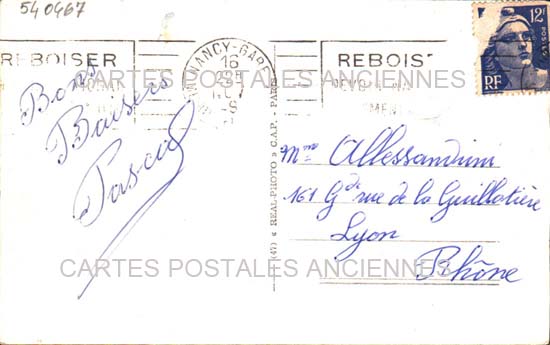 540467
REBOISER
NANCY-GARE
16
REBOIS
12F
RF
CARTES POSTALES ANCIENNES
Bons
Baisers
Pascal
Mme Allessandrini
161 Gde rue de la Guillotière
Lyon
Rhône
(47) « REAL-PHOTO » C.A.P. - PARIS
CARTES POSTALES ANCIENNES